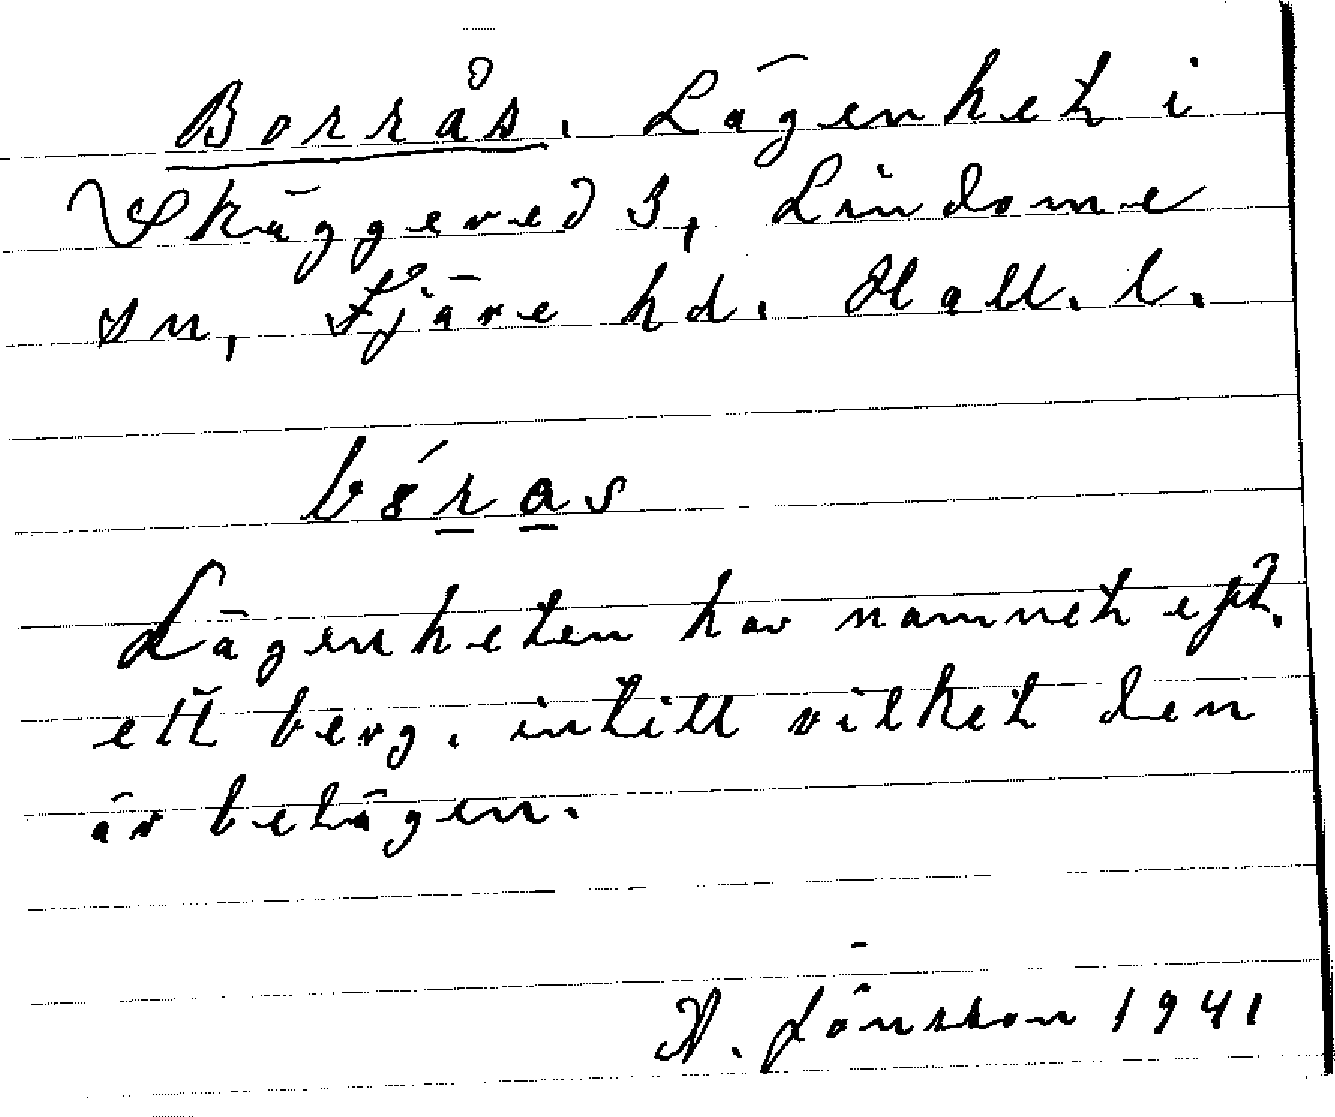 Borrås. Lägenhet i
Skäggered 3, Lindome
sn, Fjäre hd. Hall. l.
Lägenheten har namnet eft.
ett berg, intill vilket den
är belägen.
A. Jönsson 1941